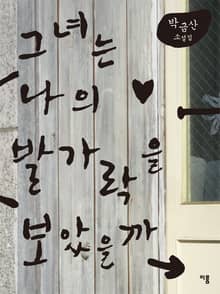 그녀는
나의
발가락을
보았을까
박금산
소설집
미름